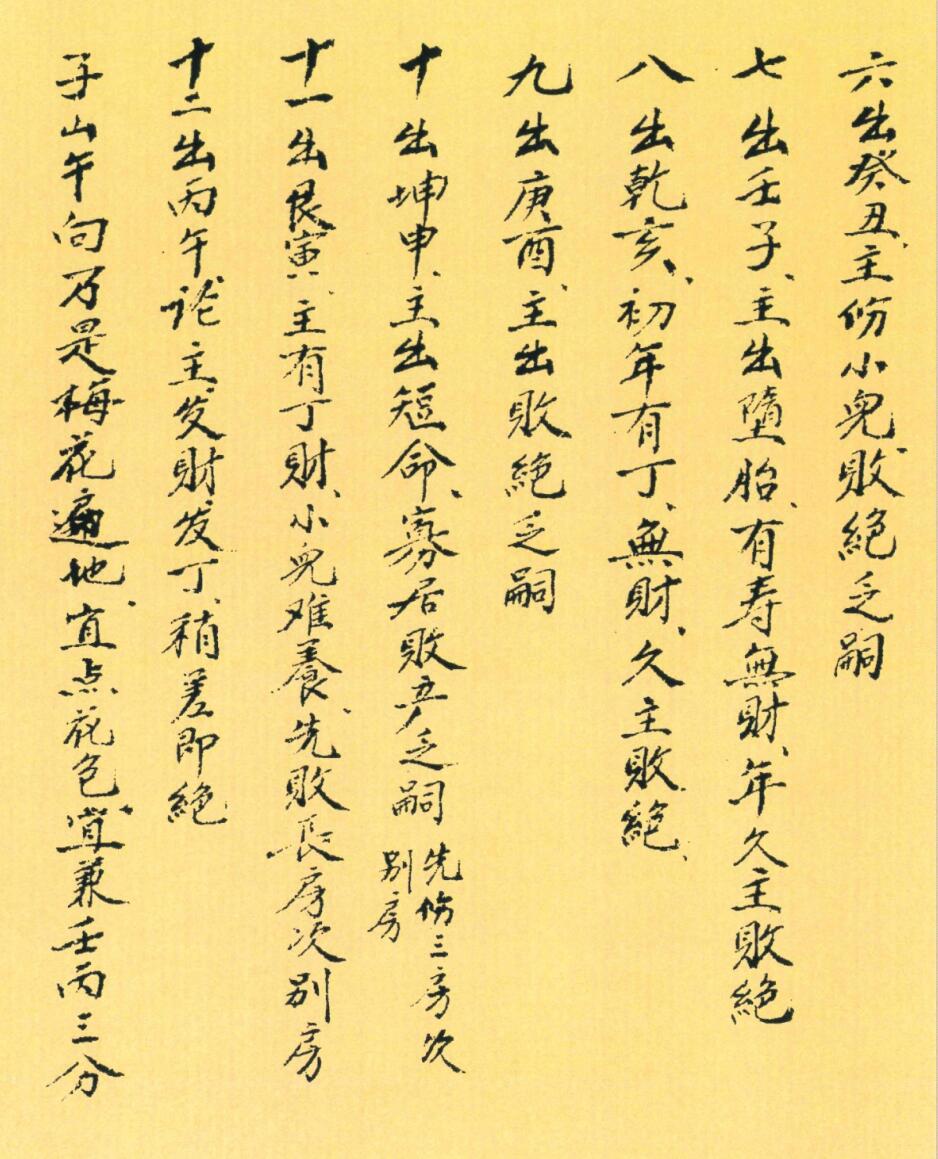 六出癸丑、主伤小児、敗絕乏嗣
七出壬子、主出墮胎、有寿無財、年久主敗絕
八出乾亥、初年有丁、無財、久主敗絕、
九出庚酉、主出敗絕乏嗣
十出坤申、主出短命、寡居敗产乏嗣 先伤三房次别房
十一出艮寅、主有丁財、小児难養、先敗長房次别房
十二出丙午论主、发財、发丁、稍差即絕
子山午向乃是梅花遍地、宜点花色、宜兼壬丙三分